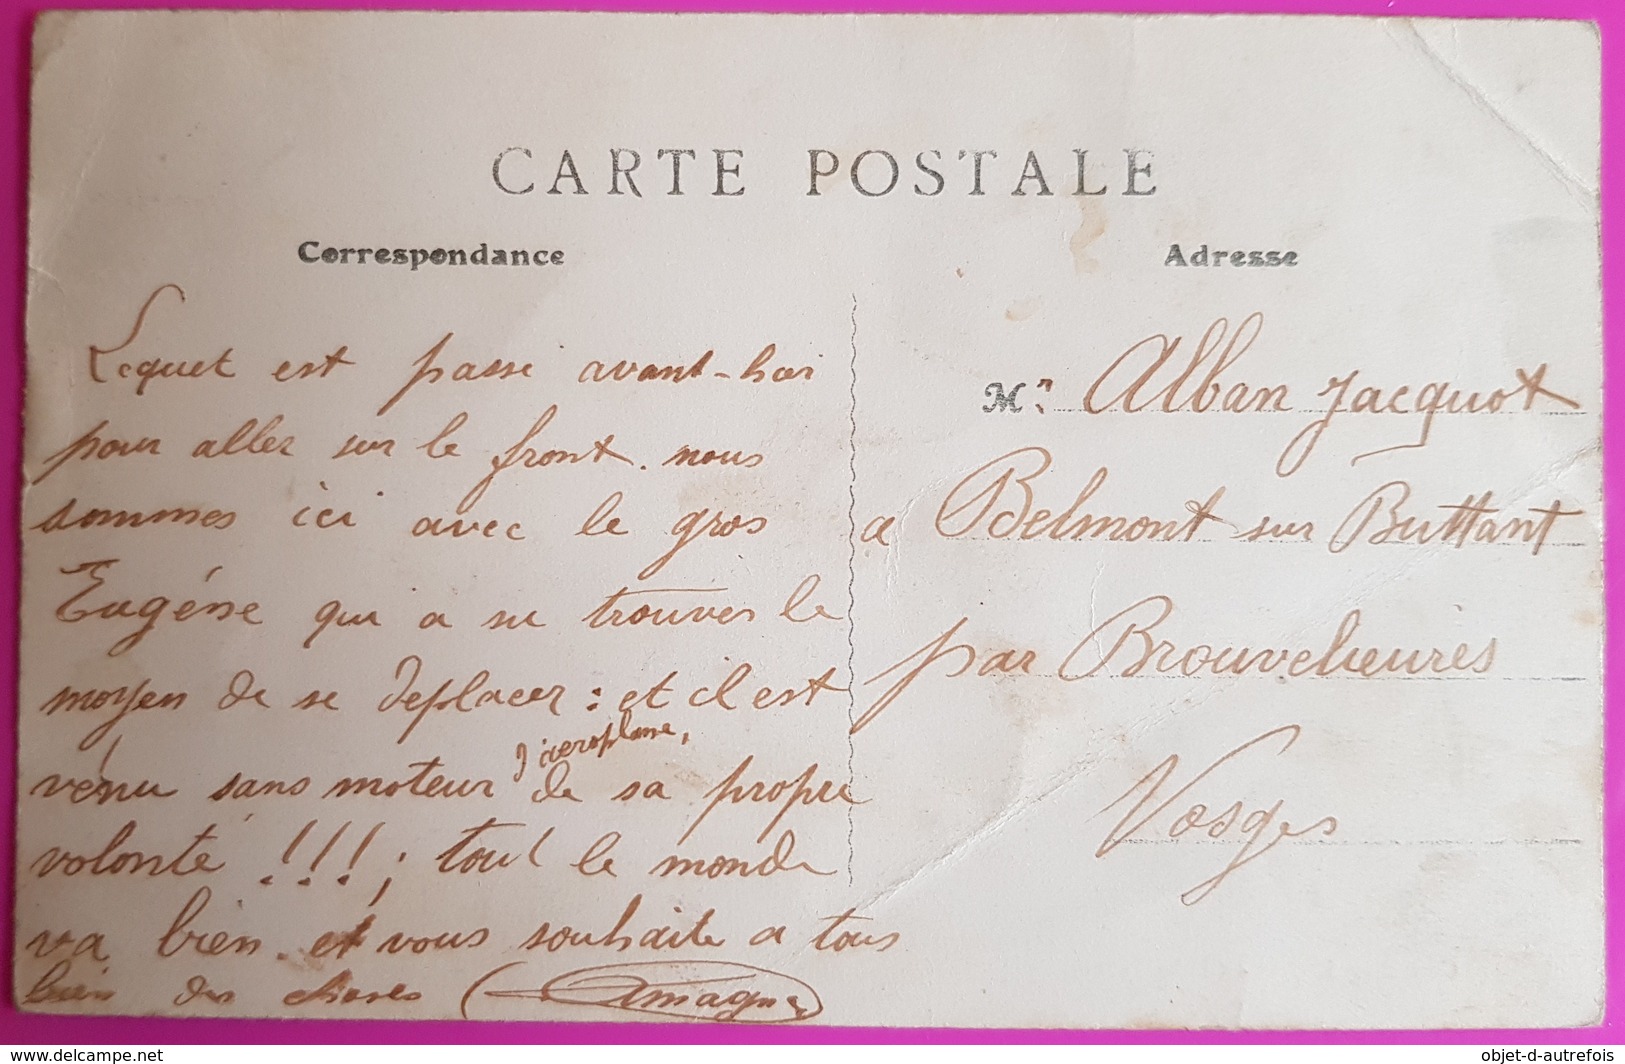 CARTE POSTALE
Correspondance
Lequet est passé avant-hoi
pour aller sur le front. nous
sommes ici avec le gros
Eugéne qui a su trouver le
moyen de se deplacer : et il est
d'aeroplane,
vénu sans moteur de sa propre
volonté !!! ; tout le monde
va bien. et vous souhaite a tous
bien des choses
Adresse
Mr. Alban Jacquot
a Belmont sur Buttant
par Brouvelieures
Vosges
delcampe.net
objet-d-autrefois